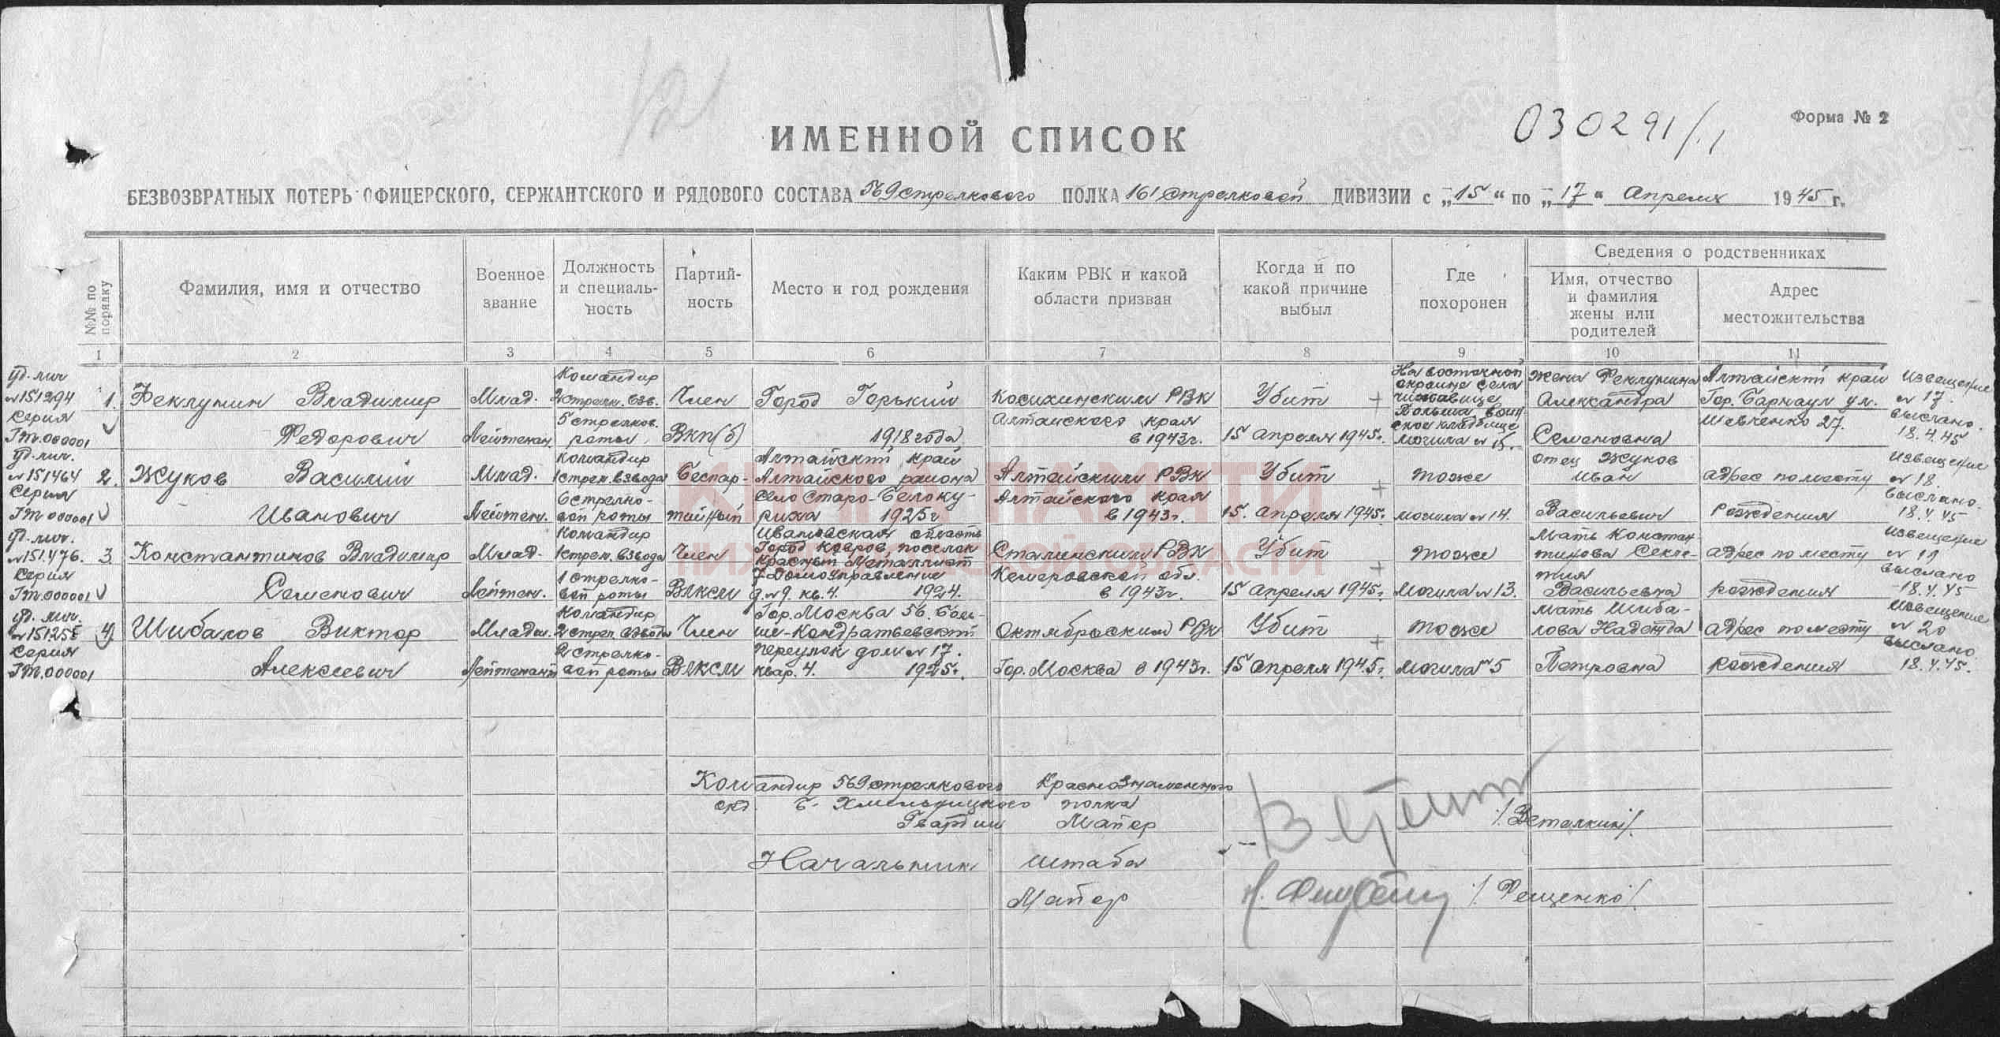 12
030291/1
Форма № 2
ИМЕННОЙ СПИСОК
БЕЗВОЗВРАТНЫХ ПОТЕРЬ ОФИЦЕРСКОГО, СЕРЖАНТСКОГО И РЯДОВОГО СОСТАВА 569 стрелкового ПОЛКА 161 стрелковой ДИВИЗИИ с „15“ по „17“ апреля 1945 г.
№№ по порядку
Фамилия, имя и отчество
Военное звание
Должность и специальность
Партийность
Место и год рождения
Каким РВК и какой области призван
Когда и по какой причине выбыл
Где похоронен
Сведения о родственниках
Имя, отчество и фамилия жены или родителей
Адрес местожительства
1 2 3 4 5 6 7 8 9 10 11
уд. лич № 151294 серия ГТ.000001
1. Феклунин Владимир Федорович
Млад. Лейтенан
Командир 2 стрелк. взв. 5 стрелков. роты
Член ВКП(б)
Город Горький 1918 года
Косихинским РВК Алтайского края в 1943г.
Убит 15 апреля 1945г.
На восточной окраине села воинское кладбище могила № 15.
Жена Феклунина Александра Семеновна
Алтайский край Гор. Барнаул ул. Шевченко 27.
Извещение № 17. выслано. 18.4.45
уд. лич. № 151464 серия ГТ 000001
2. Жуков Василий Иванович
Млад. Лейтен.
Командир 1 стрел. взвода 6 стрелковой роты
Беспартийный
Алтайский край Алтайского района село Старо-Белокуриха 1925г.
Алтайским РВК Алтайского края в 1943г.
Убит 15. апреля 1945г.
тоже могила № 14.
отец Жуков Иван Васильевич
адрес по месту рождения
Извещение № 18. выслано. 18.4.45
уд. лич. № 151.476. серия ГТ.000001
3. Константинов Владимир Семенович
Млад. Лейтен.
Командир 1 стрел. взвода 1 стрелковой роты
Член ВЛКСМ
Ивановская область Город Ковров поселок Красный Металлист 7 Домоуправление д. № 9. кв. 4. 1924.
Сталинским РВК Кемеровской обл. в 1943г.
Убит 15 апреля 1945г.
тоже могила № 13.
Мать Константинова Васильевна
адрес по месту рождения
Извещение № 19 выслано 18.4.45
уд. лич. № 151255 серия ГТ.000001
4. Шибалов Виктор Алексеевич
Младш. Лейтенант
Командир 2 стрел. взвода 2 стрелковой роты
Член ВЛКСМ
Гор. Москва 56. Больше-Кондратьевский переулок дом № 17. квар. 4. 1925г.
Октябрьским РВК Гор. Москва в 1943г.
Убит 15 апреля 1945г.
тоже могила № 5
мать Шибалова Надежда Петровна
адрес по месту рождения
Извещение № 20 выслано 18.4.45.
КНИГА ПАМЯТИ
НИЖЕГОРОДСКОЙ ОБЛАСТИ
Командир 569 стрелкового Краснознаменного
орд. Б. Хмельницкого полка
Гвардии Майор /Веталкин/.
Начальник штаба
Майор /Фещенко/.